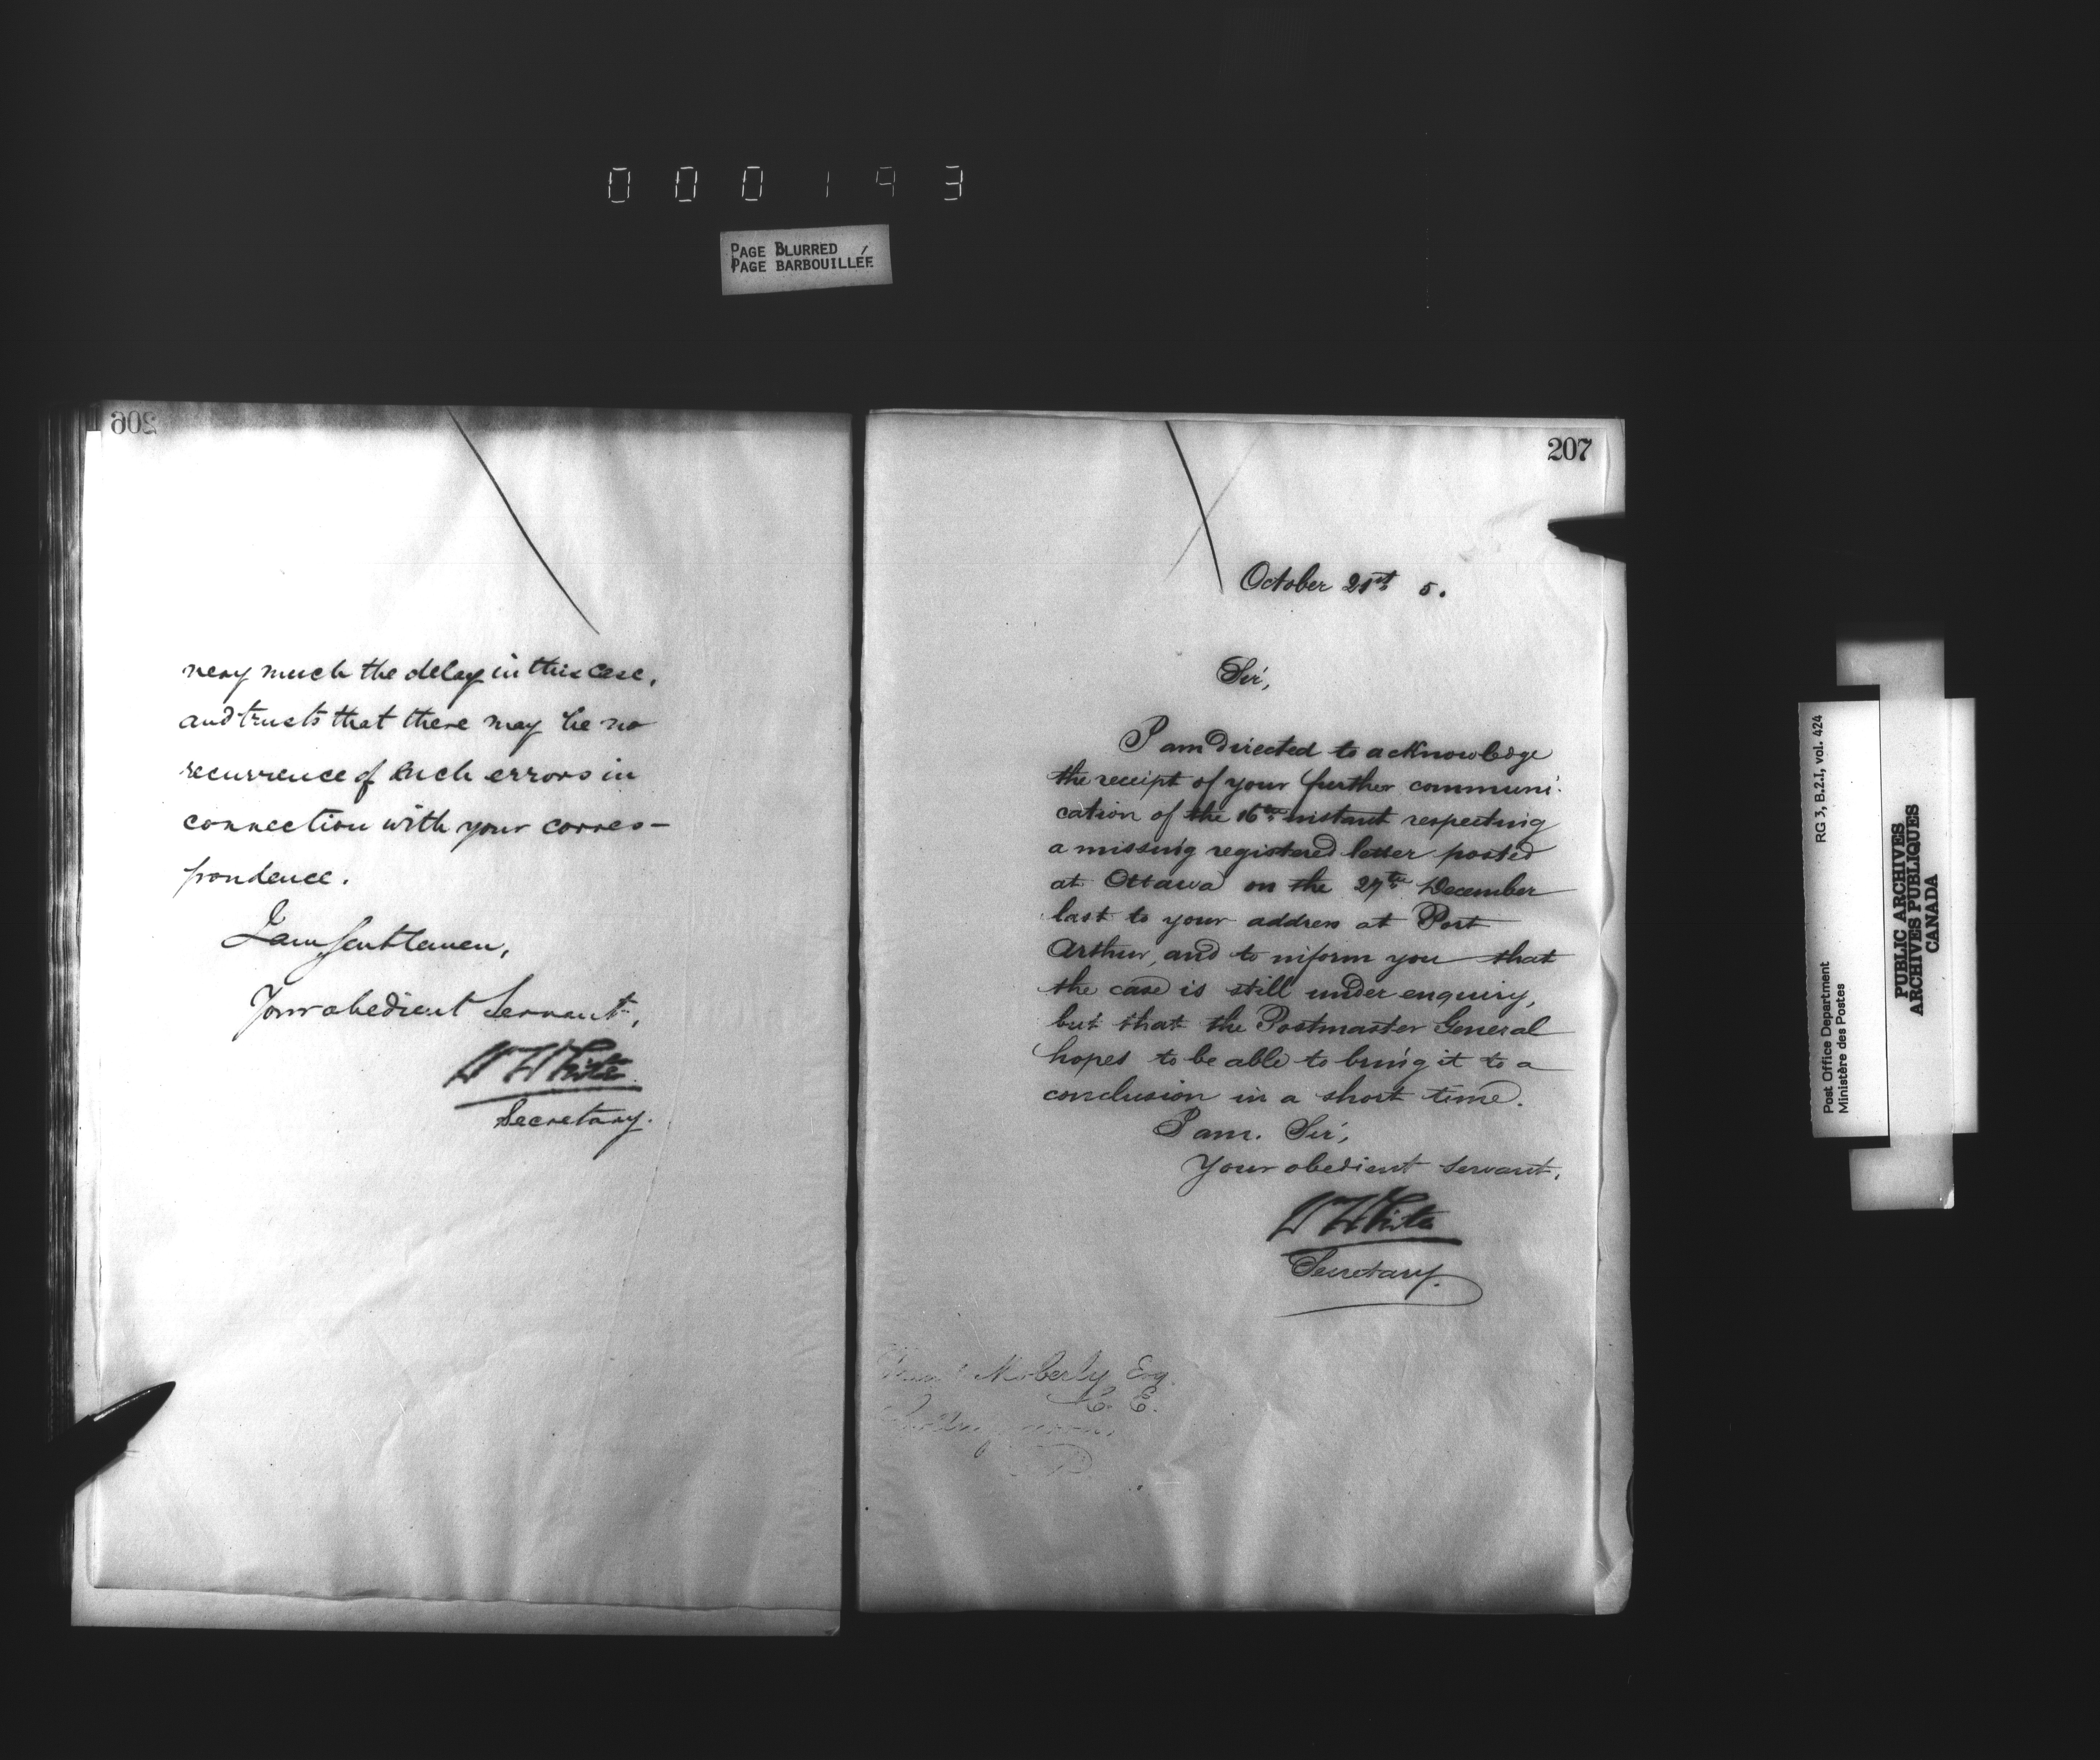 000193
PAGE BLURRED
PAGE BARBOUILLÉE
206
very much the delay in this case,
and trusts that there may be no
recurrence of such errors in
connection with your corres-
pondence.
I am, Gentlemen,
Your obedient Servant,
W White
Secretary.
207
October 21st 5.
Sir,
I am directed to acknowledge
the receipt of your further communi-
cation of the 16th instant respecting
a missing registered letter posted
at Ottawa on the 27th December
last to your address at Port
Arthur, and to inform you that
the case is still under enquiry,
but that the Postmaster General
hopes to be able to bring it to a
conclusion in a short time.
I am. Sir,
Your obedient servant,
W White
Secretary.
Moberly Esq.
C. E.
RG 3, B.2.I, vol. 424
Post Office Department
Ministère des Postes
PUBLIC ARCHIVES
ARCHIVES PUBLIQUES
CANADA